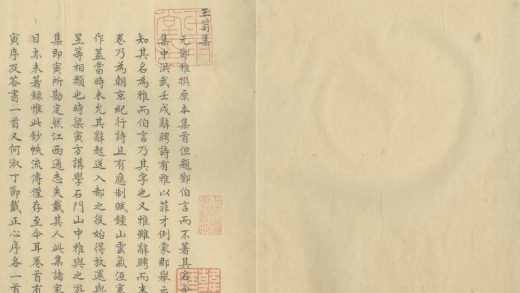 玉笥集
元鄧雅撰原本集首但題鄧伯言而不著其名今
集中洪武壬戌辭聘詩有雅以菲才例蒙郡舉云
知其名為雅而伯言乃其字也又雅雖辭聘而末
卷乃為朝京紀行詩且有應制賦鍾山雲氣浥寒
作蓋當時未允其辭起送入都之後始得放還與
昱等相類也時梁寅方講學石門山中雅與之游
集即寅所勘定然江西通志失載其人此集諸家
目亦未著録惟此鈔帙流傳僅存至今耳卷首有
寅序及答書一首又何淑丁節戴正心序各一首